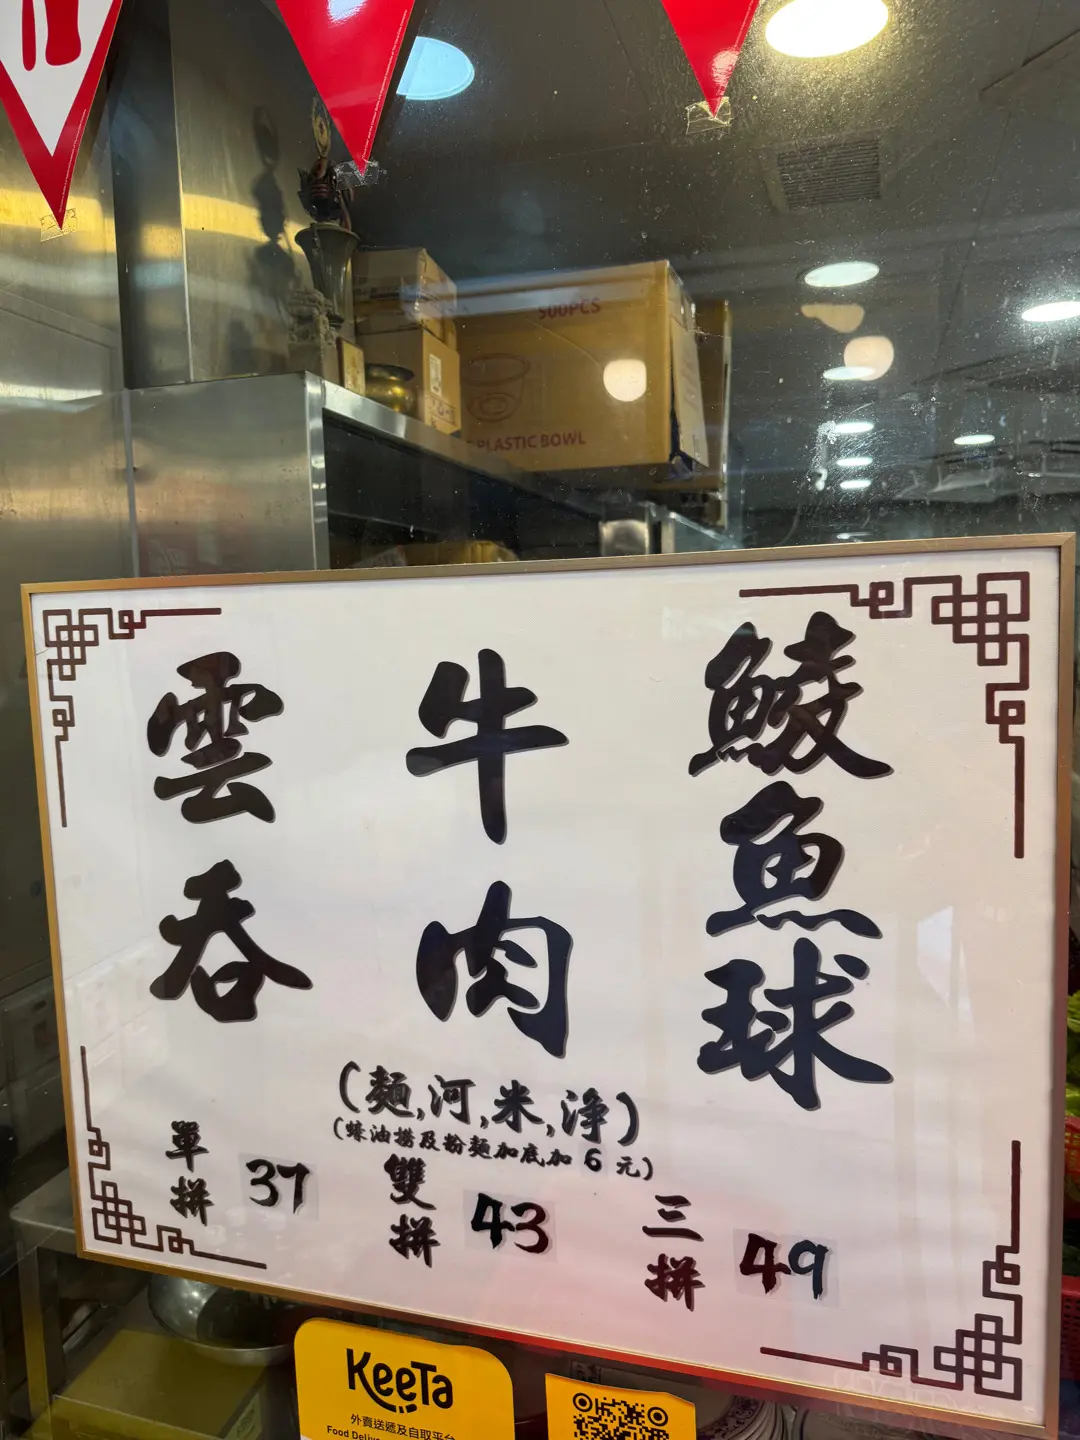 500PCS
PLASTIC BOWL
鯪魚球
牛肉
雲吞
(麵,河,米,淨)
(蠔油撈及粉麵加底加 6 元)
單拼 37
雙拼 43
三拼 49
KeeTa
外賣送遞及自取平台
Food Delive